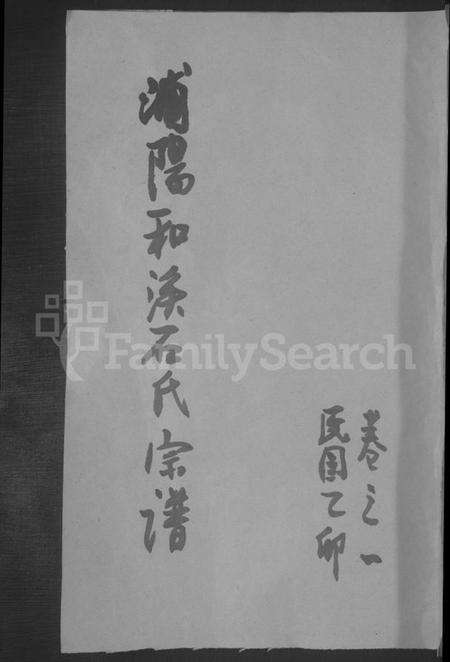 卷之一
民国乙卯
浦陽和溪石氏宗譜
FamilySearch